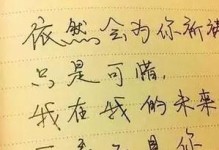 依然会为你
只是可惜,
我在我的未来
你